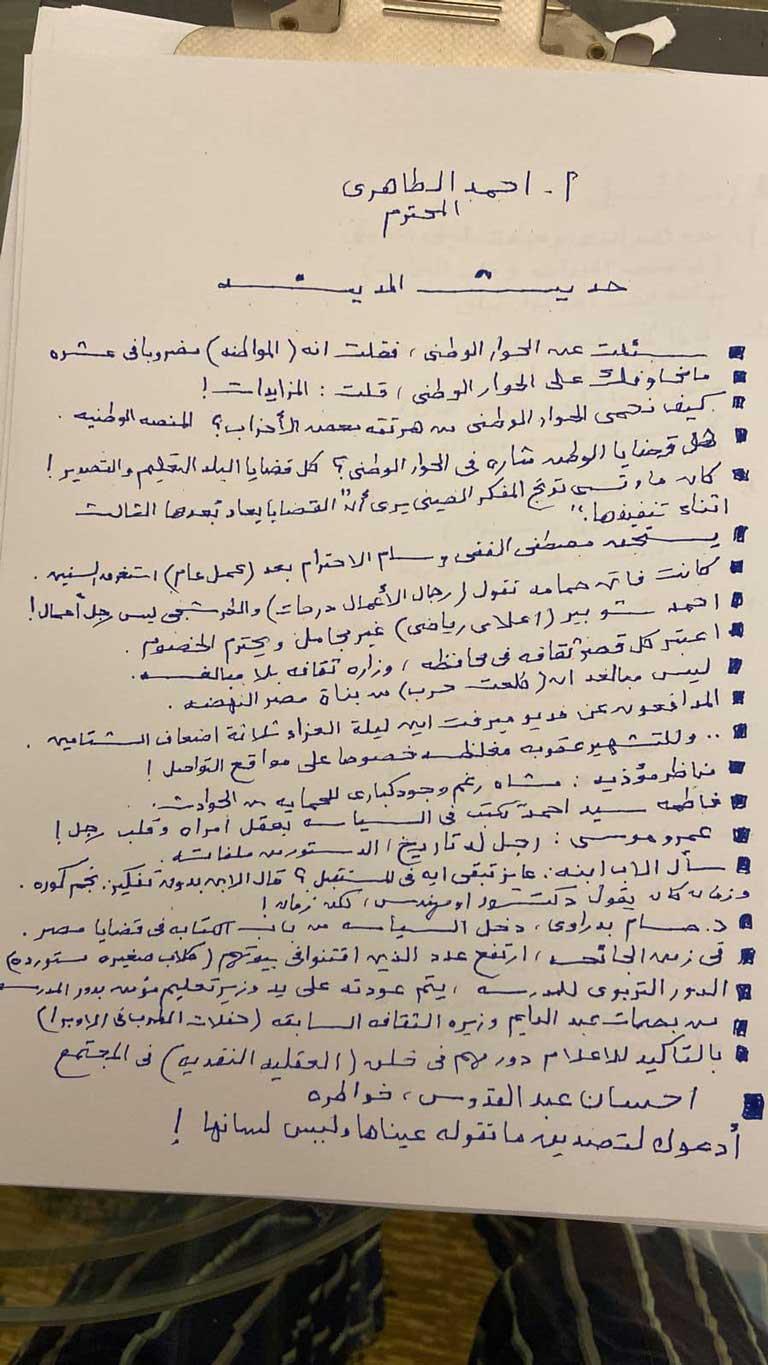 أ. احمد الطاهرى
المحترم
حديث المدينه
سئلت عن الحوار الوطنى، فقلت انه (المواطنه) مضروبا فى عشره
ما مخاوفك على الحوار الوطنى، قلت: المزايدات!
كيف نحمى الحوار الوطنى من هرتقه بعض الأحزاب؟ المنصه الوطنيه.
هل قضايا الوطن شاره فى الحوار الوطنى؟ كل قضايا البلد التعليم والتصدير!
كان ماوتسى تونج المفكر الصينى يرى أن "القضايا يعاد بعدها الثالث
اثناء تنفيذها."
يستحق مصطفى الفقى وسام الاحترام بعد (عمل عام) استغرق السنين.
كانت فاتن حمامه تقول (رجال الأعمال درجات) والخرشجى ليس رجل أعمال!
احمد شوبير (اعلامى رياضى) غير مجامل ويحترم الخصوم.
اعتبر كل قصر ثقافه فى محافظه، وزاره ثقافه بلا مبالغه.
ليس مبالغه ان (طلعت حرب) من بناة مصر النهضه.
المدافعون عن فديو ميرفت امين ليلة العزاء ثلاثة اضعاف الشتامين.
.. وللتشهير عقوبه مغلظه خصوصا على مواقع التواصل!
مناظر مؤذيه: مشاه رغم وجود كبارى للحمايه من الحوادث.
فاطمه سيد احمد تكتب فى السياسه بعقل امراه وقلب رجل!
عمرو موسى: رجل له تاريخ/ الدستور من ملفاته.
سأل الاب ابنه: عايز تبقى ايه فى المستقبل؟ قال الابن بدون تفكير: نجم كوره.
وزمان كان يقول دكتور او مهندس، لكن زمان!
د. حسام بدراوى، دخل السياسه من باب الكتابه فى قضايا مصر.
فى زمن الجائحه، ارتفع عدد الذين اقتنوا فى بيوتهم (كلاب صغيره مستورده)
الدور التربوى للمدرسه، يتم عودته على يد وزير تعليم مؤمن بدور المدرسه
من بصمات عبد الدايم وزيره الثقافه السابقه (حفلات الطرب فى الاوبرا)
بالتأكيد للاعلام دور مهم فى خلق (العقليه النقديه) فى المجتمع
احسان عبد القدوس، خواطره
أدعوك لتصديق ما تقوله عيناها وليس لسانها!